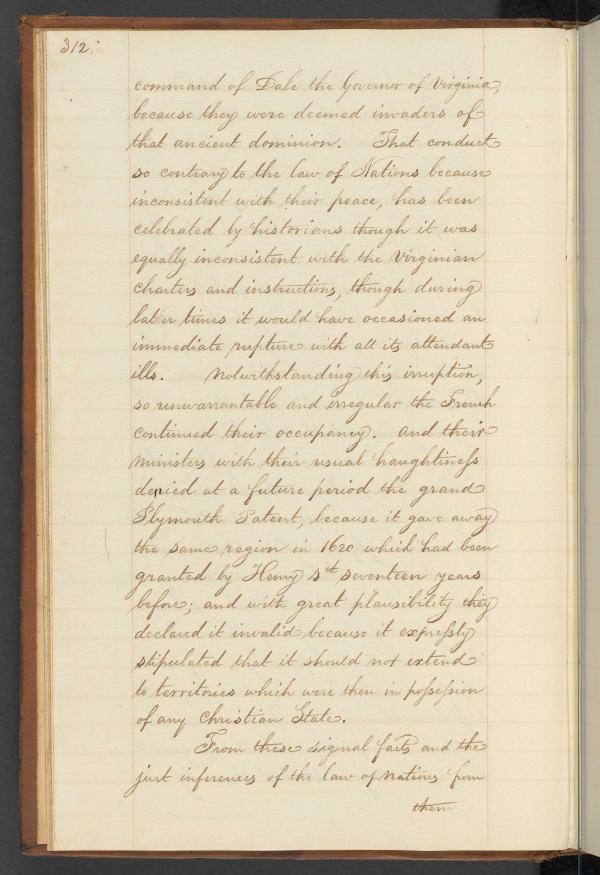 312.
command of Dale the Governor of Virginia,
because they were deemed invaders of
that ancient dominion. That conduct
so contrary to the law of Nations because
inconsistent with their peace, has been
celebrated by historians though it was
equally inconsistent with the Virginian
charters and instructions, though during
latter times it would have occasioned an
immediate rupture with all its attendant
ills. Notwithstanding this irruption,
so unwarrantable and irregular the French
continued their occupancy. and their
ministers with their usual haughtiness
denied at a future period the grand
Plymouth Patent, because it gave away
the same region in 1620 which had been
granted by Henry 4th seventeen years
before; and with great plausibility they
declared it invalid because it expressly
stipulated that it should not extend
to territories which were then in possession
of any Christian State.
From these signal facts and the
just inferences of the law of nations from
them